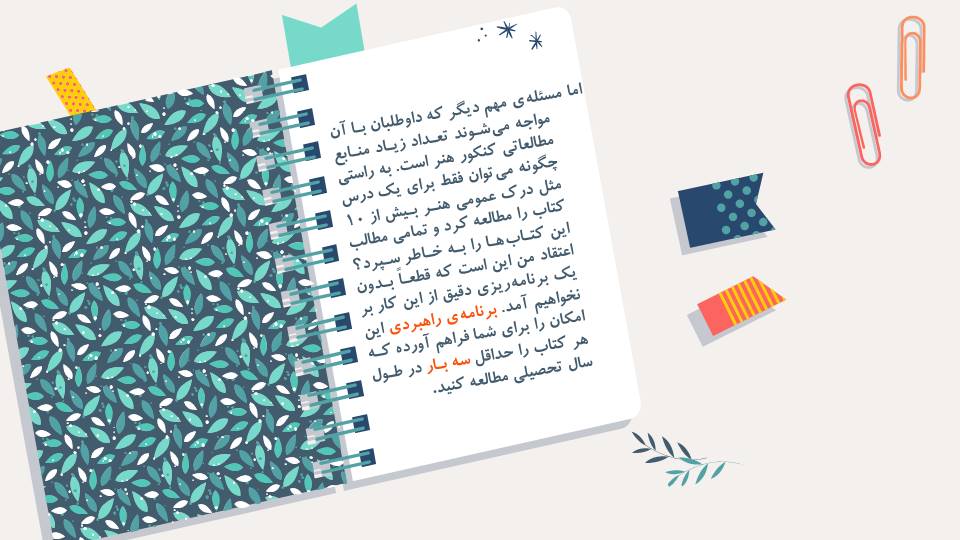 اما مسئله‌ی مهم دیگر که داوطلبان با آن
مواجه می‌شوند تعداد زیاد منابع
مطالعاتی کنکور هنر است. به راستی
چگونه می‌توان فقط برای یک درس
مثل درک عمومی هنر بیش از ۱۰
کتاب را مطالعه کرد و تمامی مطالب
این کتاب‌ها را به خاطر سپرد؟
اعتقاد من این است که قطعاً بدون
یک برنامه‌ریزی دقیق از این کار بر
نخواهیم آمد. برنامه‌ی راهبردی این
امکان را برای شما فراهم آورده که
هر کتاب را حداقل سه بار در طول
سال تحصیلی مطالعه کنید.